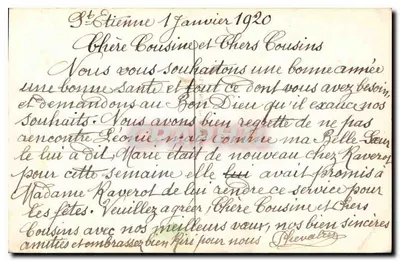 St Etienne 1 Janvier 1920
Chère Cousine et Chers Cousins
Nous vous souhaitons une bonne année
une bonne santé et tout ce dont vous avez besoin
et demandons au Bon Dieu qu'il exauce nos
souhaits. Nous avons bien regretté de ne pas
rencontre Léonie, mais comme ma Belle-Sœur
te lui a dit Marie était de nouveau chez Raverot
pour cette semaine elle lui avait promis à
Madame Raverot de lui rendre ce service pour
les fêtes. Veuillez agréer Chère Cousine et Chers
Cousins avec nos meilleurs vœux, nos bien sincères
amitiés et embrassez bien pour nous